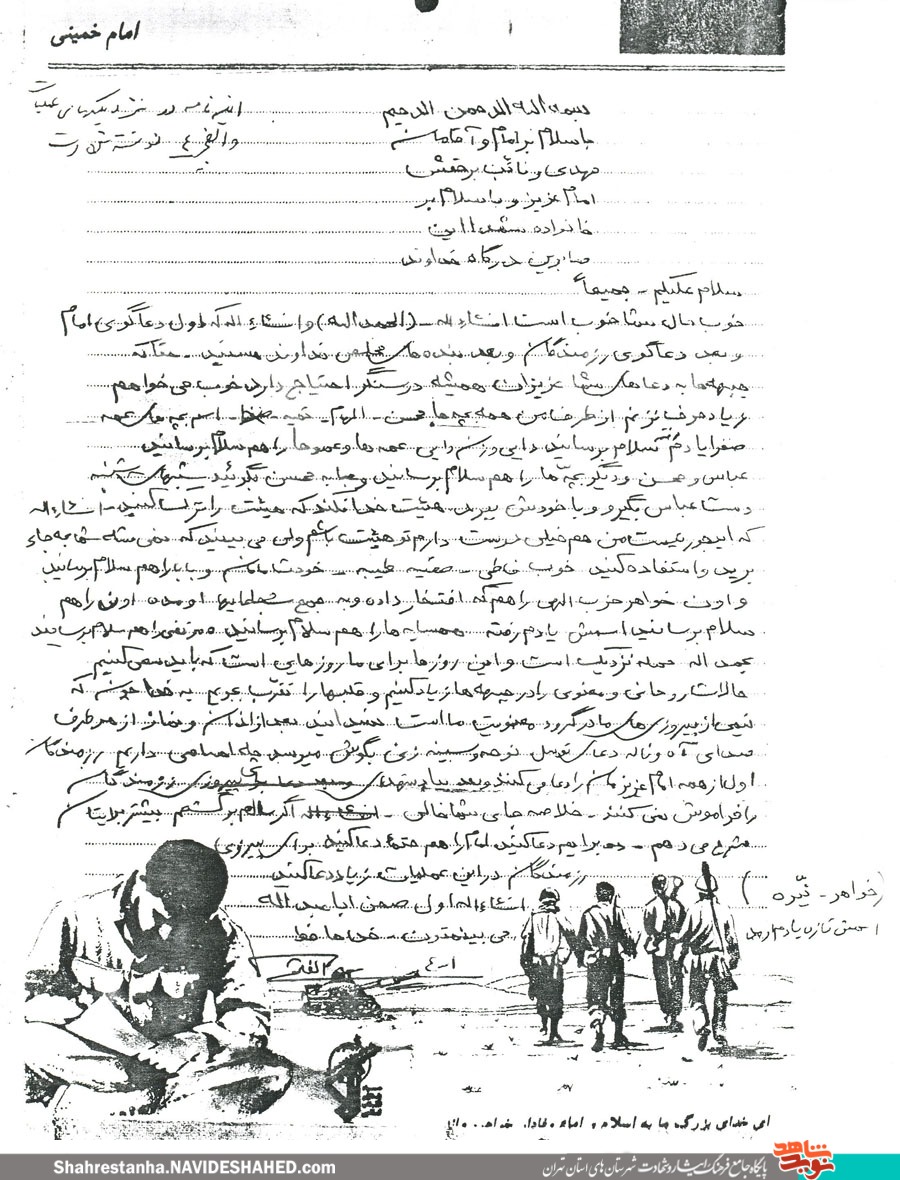 امام خمینی
بسمه الله الرحمن الرحیم
این نامه در نزدیکیهای عملیات
والفجر ٤ نوشته شده است
با سلام بر امام و آقامان
مهدی و نائب بر حقش
امام عزیز و با سلام بر
خانواده شهدا این
صابرین درگاه خداوند
سلام علیکم - جمیعاً
خوب حال شما خوب است انشاءاله - (الحمداله) و انشاءاله که اول دعاگوی امام
و بعد دعاگوی رزمندگان و بعد بنده های مخلص خداوند هستید - حقاً که
جبهه ها به دعاهای شما عزیزان همیشه در سنگر احتیاج دارد خوب می خواهم
زیاد حرف بزنم از طرف من همه بچه ها محسن - الهام - اسم بچه های عمه
صغرا یادم سلام برسانید دایی عمه ها و عموها را هم سلام برسانید
عباس و محسن و دیگر بچه ها را هم سلام برسانید و به محسن بگوئید شبهای شنبه
دست عباس بگیر و با خودش ببرد هیئت خدا نکند که هیئت را ترک کنید - انشاءاله
که اینجور نیست من هم خیلی دوست دارم تو هیئت باشم ولی می بینید که نمی شه شما به جای
برید و استفاده کنید خوب فاطی - صفیه طیبه - خودت مامان و بابا را هم سلام برسانید
و اون خواهر حزب الهی را هم که افتخار داده و به جمع شماها اومده اون را هم
سلام برسانید اسمش یادم رفته همسایه ها را هم سلام برسانید مرتضی را هم سلام برسانید
بحمداله حمله نزدیک است و این روزها برای ما روزهایی است که باید سعی کنیم
حالات روحانی و معنوی را در جبهه ها زیاد کنیم و قلبها را تقرب بدیم به خدا چون که
نیمی از پیروزی های ما در گرو معنویت ما است بعد از اذان و نماز از هر طرف
صدای آه و ناله دعای توسل نوحه و سینه زنی بگوش میرسد چه احساسی داریم رزمندگان
اول از همه امام عزیزمان را دعا می کنند و بعد پیروزی رزمندگان
را فراموش نمی کنند - خلاصه جای شما خالی - انشاءاله اگر سالم برگشتم بیشتر برایتان
شرح می دهم - برایم دعا کنید امام را هم حتماً دعا کنید برای پیروزی
رزمندگان در این عملیات زیاد دعا کنید
(خواهر - نیره)
اسمش تازه یادم آمد
انشاءاله اول صحن اباعبداله
می بینمتون - خدا حافظ
ای خدای بزرگ ما به اسلام و امام وفادار خواهیم ماند
نوید شاهد
پایگاه جامع فرهنگ ایثار و شهادت شهرستان های استان تهران
Shahrestanha.NAVIDESHAHED.com